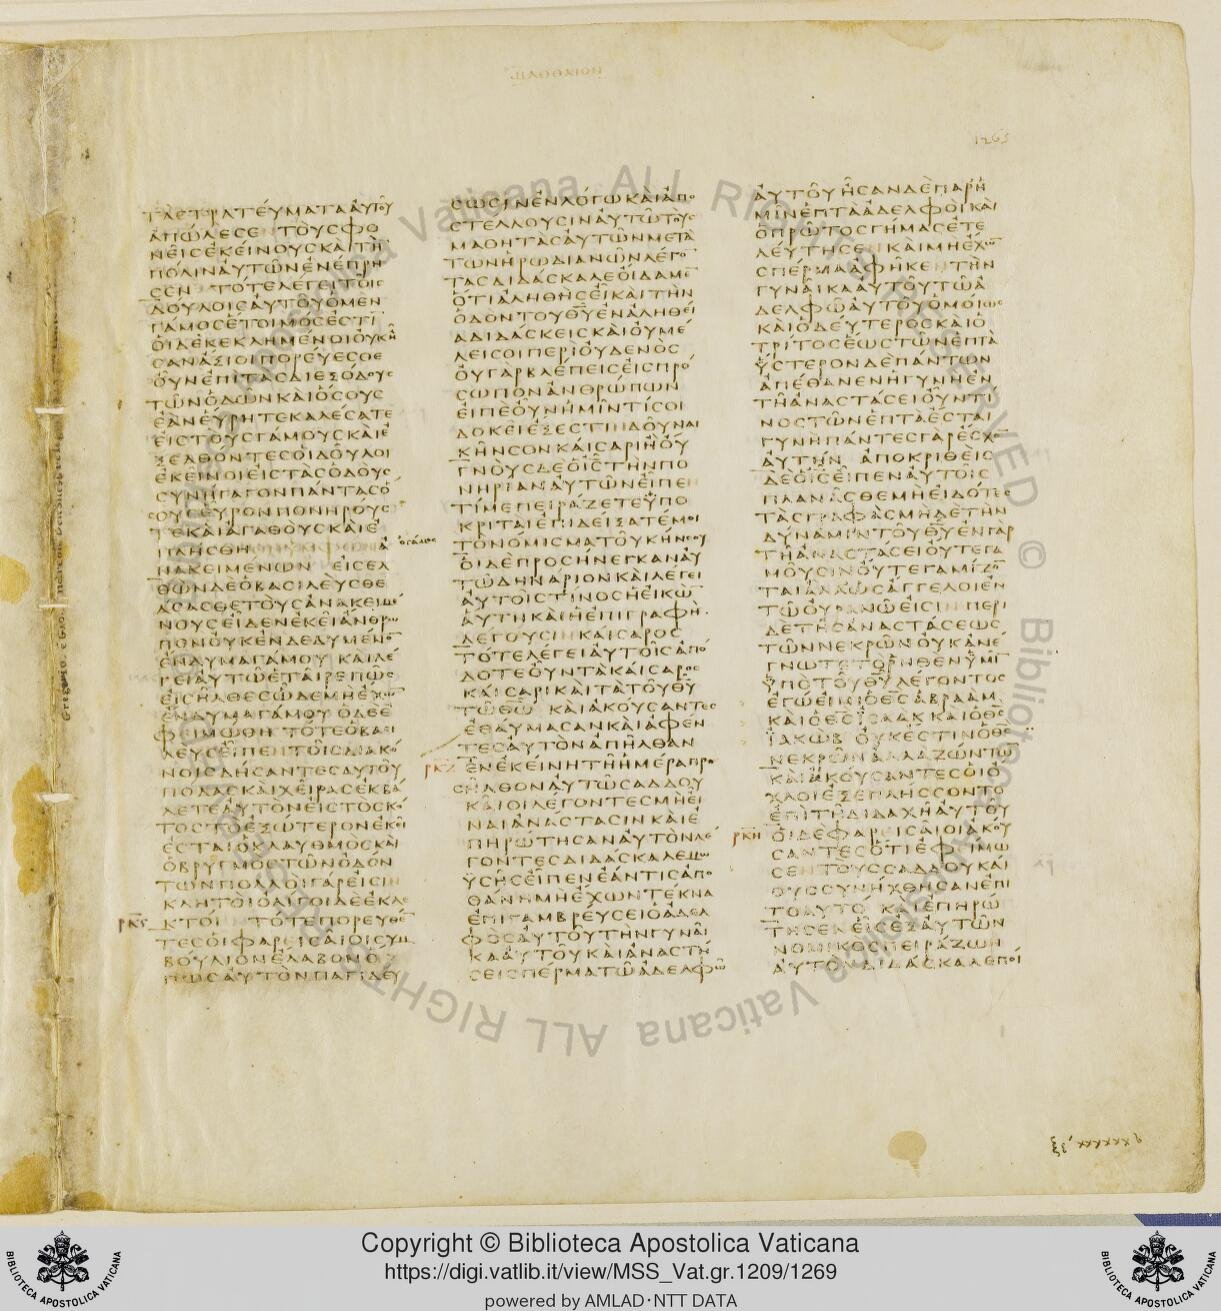 1269
ΤΑ ϹΤΡΑΤΕΥΜΑΤΑ ΑΥΤΟΥ
ΑΠΩΛΕϹΕ ΤΟΥϹ ΦΟ
ΝΕΙϹ ΕΚΕΙΝΟΥϹ ΚΑΙ ΤΗ̅
ΠΟΛΙΝ ΑΥΤΩΝ ΕΝΕΠΡΗ
ϹΕΝ ΤΟΤΕ ΛΕΓΕΙ ΤΟΙϹ
ΔΟΥΛΟΙϹ ΑΥΤΟΥ Ο ΜΕΝ
ΓΑΜΟϹ ΕΤΟΙΜΟϹ ΕϹΤΙ̅
ΟΙ ΔΕ ΚΕΚΛΗΜΕΝΟΙ ΟΥΚ Η̅
ϹΑΝ ΑΞΙΟΙ ΠΟΡΕΥΕϹΘΕ
ΟΥΝ ΕΠΙ ΤΑϹ ΔΙΕΞΟΔΟΥϹ
ΤΩΝ ΟΔΩΝ ΚΑΙ ΟϹΟΥϹ
ΕΑΝ ΕΥΡΗΤΕ ΚΑΛΕϹΑΤΕ
ΕΙϹ ΤΟΥϹ ΓΑΜΟΥϹ ΚΑΙ Ε
ΞΕΛΘΟΝΤΕϹ ΟΙ ΔΟΥΛΟΙ
ΕΚΕΙΝΟΙ ΕΙϹ ΤΑϹ ΟΔΟΥϹ
ϹΥΝΗΓΑΓΟΝ ΠΑΝΤΑϹ Ο
ΟΥϹ ΕΥΡΟΝ ΠΟΝΗΡΟΥϹ
ΤΕ ΚΑΙ ΑΓΑΘΟΥϹ ΚΑΙ Ε
ΠΛΗϹΘΗ Ο ΝΥΜΦΩΝ Α
ΝΑΚΕΙΜΕΝΩΝ ΕΙϹΕΛ
ΘΩΝ ΔΕ Ο ΒΑϹΙΛΕΥϹ ΘΕ
ΑϹΑϹΘΕ ΤΟΥϹ ΑΝΑΚΕΙΜΕ
ΝΟΥϹ ΕΙΔΕΝ ΕΚΕΙ ΑΝΘΡΩ
ΠΟΝ ΟΥΚ ΕΝΔΕΔΥΜΕΝΟ̅
ΕΝΔΥΜΑ ΓΑΜΟΥ ΚΑΙ ΛΕ
ΓΕΙ ΑΥΤΩ ΕΤΑΙΡΕ ΠΩϹ
ΕΙϹΗΛΘΕϹ ΩΔΕ ΜΗ ΕΧΩ̅
ΕΝΔΥΜΑ ΓΑΜΟΥ Ο ΔΕ Ε
ΦΙΜΩΘΗ ΤΟΤΕ Ο ΒΑϹΙ
ΛΕΥϹ ΕΙΠΕΝ ΤΟΙϹ ΔΙΑΚΟ
ΝΟΙϹ ΔΗϹΑΝΤΕϹ ΑΥΤΟΥ
ΠΟΔΑϹ ΚΑΙ ΧΕΙΡΑϹ ΕΚΒΑ
ΛΕΤΕ ΑΥΤΟΝ ΕΙϹ ΤΟ ϹΚΟ
ΤΟϹ ΤΟ ΕΞΩΤΕΡΟΝ ΕΚΕΙ
ΕϹΤΑΙ Ο ΚΛΑΥΘΜΟϹ ΚΑΙ
Ο ΒΡΥΓΜΟϹ ΤΩΝ ΟΔΟΝ
ΤΩΝ ΠΟΛΛΟΙ ΓΑΡ ΕΙϹΙΝ
ΚΛΗΤΟΙ ΟΛΙΓΟΙ ΔΕ ΕΚΛΕ
ΡΚϚ ΚΤΟΙ ΤΟΤΕ ΠΟΡΕΥΘΕ̅
ΤΕϹ ΟΙ ΦΑΡΕΙϹΑΙΟΙ ϹΥΜ
ΒΟΥΛΙΟΝ ΕΛΑΒΟΝ Ο
ΠΩϹ ΑΥΤΟΝ ΠΑΓΙΔΕΥ
ϹΩϹΙΝ ΕΝ ΛΟΓΩ ΚΑΙ ΑΠΟ
ϹΤΕΛΛΟΥϹΙΝ ΑΥΤΩ ΤΟΥϹ
ΜΑΘΗΤΑϹ ΑΥΤΩΝ ΜΕΤΑ
ΤΩΝ ΗΡΩΔΙΑΝΩΝ ΛΕΓΟ̅
ΤΑϹ ΔΙΔΑϹΚΑΛΕ ΟΙΔΑΜΕ̅
ΟΤΙ ΑΛΗΘΗϹ ΕΙ ΚΑΙ ΤΗΝ
ΟΔΟΝ ΤΟΥ ΘΥ̅ ΕΝ ΑΛΗΘΕΙ
Α ΔΙΔΑϹΚΕΙϹ ΚΑΙ ΟΥ ΜΕ
ΛΕΙ ϹΟΙ ΠΕΡΙ ΟΥΔΕΝΟϹ
ΟΥ ΓΑΡ ΒΛΕΠΕΙϹ ΕΙϹ ΠΡΟ
ϹΩΠΟΝ ΑΝΘΡΩΠΩΝ
ΕΙΠΕ ΟΥΝ ΗΜΙΝ ΤΙ ϹΟΙ
ΔΟΚΕΙ ΕΞΕϹΤΙΝ ΔΟΥΝΑΙ
ΚΗΝϹΟΝ ΚΑΙϹΑΡΙ Η ΟΥ
ΓΝΟΥϹ ΔΕ Ο ΙϹ̅ ΤΗΝ ΠΟ
ΝΗΡΙΑΝ ΑΥΤΩΝ ΕΙΠΕ̅
ΤΙ ΜΕ ΠΕΙΡΑΖΕΤΕ ΥΠΟ
ΚΡΙΤΑΙ ΕΠΙΔΕΙΞΑΤΕ ΜΟΙ
ΤΟ ΝΟΜΙϹΜΑ ΤΟΥ ΚΗΝϹΟΥ
ΟΙ ΔΕ ΠΡΟϹΗΝΕΓΚΑΝ ΑΥ
ΤΩ ΔΗΝΑΡΙΟΝ ΚΑΙ ΛΕΓΕΙ
ΑΥΤΟΙϹ ΤΙΝΟϹ Η ΕΙΚΩ̅
ΑΥΤΗ ΚΑΙ Η ΕΠΙΓΡΑΦΗ
ΛΕΓΟΥϹΙΝ ΚΑΙϹΑΡΟϹ
ΤΟΤΕ ΛΕΓΕΙ ΑΥΤΟΙϹ ΑΠΟ
ΔΟΤΕ ΟΥΝ ΤΑ ΚΑΙϹΑΡΟϹ
ΚΑΙϹΑΡΙ ΚΑΙ ΤΑ ΤΟΥ ΘΥ̅
ΤΩ ΘΩ̅ ΚΑΙ ΑΚΟΥϹΑΝΤΕϹ
ΕΘΑΥΜΑϹΑΝ ΚΑΙ ΑΦΕΝ
ΤΕϹ ΑΥΤΟΝ ΑΠΗΛΘΑΝ
ΡΚΖ ΕΝ ΕΚΕΙΝΗ ΤΗ ΗΜΕΡΑ ΠΡΟ
ϹΗΛΘΟΝ ΑΥΤΩ ϹΑΔΔΟΥ
ΚΑΙΟΙ ΛΕΓΟΝΤΕϹ ΜΗ ΕΙ
ΝΑΙ ΑΝΑϹΤΑϹΙΝ ΚΑΙ Ε
ΠΗΡΩΤΗϹΑΝ ΑΥΤΟΝ ΛΕ
ΓΟΝΤΕϹ ΔΙΔΑϹΚΑΛΕ ΜΩ
ΥϹΗϹ ΕΙΠΕΝ ΕΑΝ ΤΙϹ ΑΠΟ
ΘΑΝΗ ΜΗ ΕΧΩΝ ΤΕΚΝΑ
ΕΠΙΓΑΜΒΡΕΥϹΕΙ Ο ΑΔΕΛ
ΦΟϹ ΑΥΤΟΥ ΤΗΝ ΓΥΝΑΙ
ΚΑ ΑΥΤΟΥ ΚΑΙ ΑΝΑϹΤΗ
ϹΕΙ ϹΠΕΡΜΑ ΤΩ ΑΔΕΛΦΩ
ΑΥΤΟΥ ΗϹΑΝ ΔΕ ΠΑΡ Η
ΜΙΝ ΕΠΤΑ ΑΔΕΛΦΟΙ ΚΑΙ
Ο ΠΡΩΤΟϹ ΓΗΜΑϹ ΕΤΕ
ΛΕΥΤΗϹΕΝ ΚΑΙ ΜΗ ΕΧΩ̅
ϹΠΕΡΜΑ ΑΦΗΚΕΝ ΤΗΝ
ΓΥΝΑΙΚΑ ΑΥΤΟΥ ΤΩ Α
ΔΕΛΦΩ ΑΥΤΟΥ ΟΜΟΙΩϹ
ΚΑΙ Ο ΔΕΥΤΕΡΟϹ ΚΑΙ Ο
ΤΡΙΤΟϹ ΕΩϹ ΤΩΝ ΕΠΤΑ
ΥϹΤΕΡΟΝ ΔΕ ΠΑΝΤΩΝ
ΑΠΕΘΑΝΕΝ Η ΓΥΝΗ ΕΝ
ΤΗ ΑΝΑϹΤΑϹΕΙ ΟΥΝ ΤΙ
ΝΟϹ ΤΩΝ ΕΠΤΑ ΕϹΤΑΙ
ΓΥΝΗ ΠΑΝΤΕϹ ΓΑΡ ΕϹΧΟ̅
ΑΥΤΗΝ ΑΠΟΚΡΙΘΕΙϹ
ΔΕ Ο ΙϹ̅ ΕΙΠΕΝ ΑΥΤΟΙϹ
ΠΛΑΝΑϹΘΕ ΜΗ ΕΙΔΟΤΕϹ
ΤΑϹ ΓΡΑΦΑϹ ΜΗΔΕ ΤΗΝ
ΔΥΝΑΜΙΝ ΤΟΥ ΘΥ̅ ΕΝ ΓΑΡ
ΤΗ ΑΝΑϹΤΑϹΕΙ ΟΥΤΕ ΓΑ
ΜΟΥϹΙΝ ΟΥΤΕ ΓΑΜΙΖΟ̅
ΤΑΙ ΑΛΛ ΩϹ ΑΓΓΕΛΟΙ ΕΝ
ΤΩ ΟΥΡΑΝΩ ΕΙϹΙΝ ΠΕΡΙ
ΔΕ ΤΗϹ ΑΝΑϹΤΑϹΕΩϹ
ΤΩΝ ΝΕΚΡΩΝ ΟΥΚ ΑΝΕ
ΓΝΩΤΕ ΤΟ ΡΗΘΕΝ ΥΜΙ̅
ΥΠΟ ΤΟΥ ΘΥ̅ ΛΕΓΟΝΤΟϹ
ΕΓΩ ΕΙΜΙ Ο ΘϹ̅ ΑΒΡΑΑΜ
ΚΑΙ Ο ΘϹ̅ ΙϹΑΑΚ ΚΑΙ Ο ΘϹ̅
ΙΑΚΩΒ ΟΥΚ ΕϹΤΙΝ Ο ΘϹ̅
ΝΕΚΡΩΝ ΑΛΛΑ ΖΩΝΤΩ̅
ΚΑΙ ΑΚΟΥϹΑΝΤΕϹ ΟΙ Ο
ΧΛΟΙ ΕΞΕΠΛΗϹϹΟΝΤΟ
ΕΠΙ ΤΗ ΔΙΔΑΧΗ ΑΥΤΟΥ
ΡΚΗ ΟΙ ΔΕ ΦΑΡΕΙϹΑΙΟΙ ΑΚΟΥ
ϹΑΝΤΕϹ ΟΤΙ ΕΦΙΜΩ
ϹΕ ΤΟΥϹ ϹΑΔΔΟΥΚΑΙ
ΟΥϹ ϹΥΝΗΧΘΗϹΑΝ ΕΠΙ
ΤΟ ΑΥΤΟ ΚΑΙ ΕΠΗΡΩ
ΤΗϹΕΝ ΕΙϹ ΕΞ ΑΥΤΩΝ
ΝΟΜΙΚΟϹ ΠΕΙΡΑΖΩΝ
ΑΥΤΟΝ ΔΙΔΑϹΚΑΛΕ ΠΟΙ
Copyright © Biblioteca Apostolica Vaticana
https://digi.vatlib.it/view/MSS_Vat.gr.1209/1269
powered by AMLAD·NTT DATA